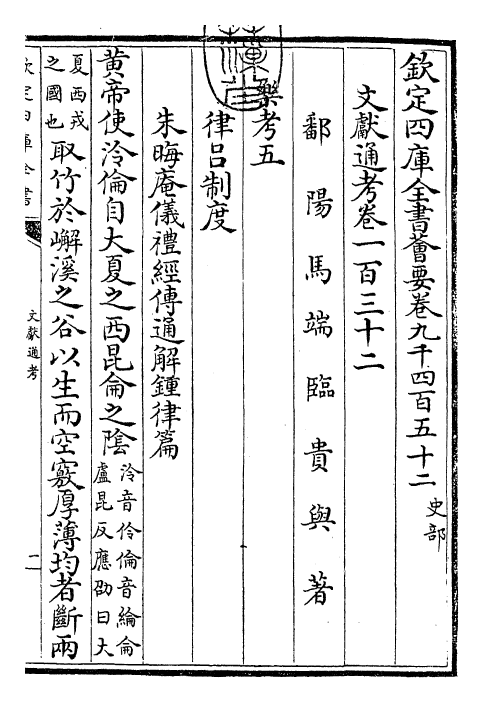 欽定四庫全書薈要卷九千四百五十二 史部
文獻通考卷一百三十二
鄱陽馬端臨貴與著
樂考五
律呂制度
朱晦庵儀禮經傳通解鍾律篇
黄帝使泠倫自大夏之西昆侖之陰
泠音伶倫音綸侖
盧昆反應劭曰大
夏西戎
之國也
取竹於嶰溪之谷以生而空竅厚薄均者斷兩
欽定四庫全書
文獻通考
一